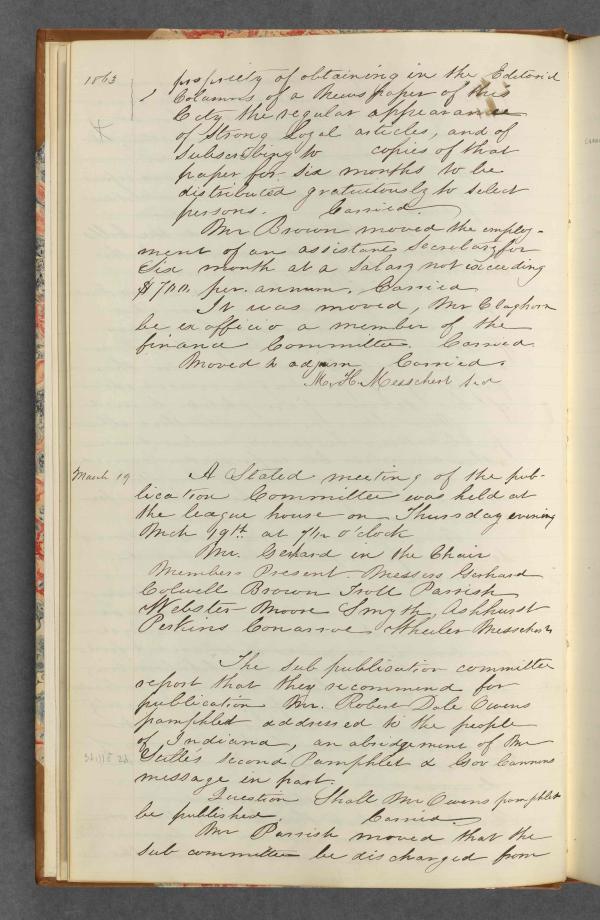 1863
propriety of obtaining in the Editorial
Columns of a Newspaper of this
City the regular appearance
of Strong Loyal articles, and of
Subscribing to copies of that
paper for six months to be
distributed gratuitously to select
persons. Carried.
Mr Brown moved the employ-
ment of an assistant Secretary for
Six month at a Salary not exceeding
$700. per. annum. Carried
It was moved, Mr Claghorn
be ex officio a member of the
finance Committee. Carried.
Moved to adjourn Carried.
M. H. Messchert Sec
March 19
A Stated meeting of the pub-
lication Committee was held at
the league house on Thursday evening
Mch 19th at 7½ o'clock
Mr. Gerhard in the Chair
Members Present. Messrs Gerhard
Colwell Brown Troll Parrish
Webster Moore Smyth, Ashhurst
Perkins Conarroe Wheeler Messchert
The Sub publication committee
report that they recommend for
publication Mr. Robert Dale Owens
pamphlet addressed to the people
of Indiana, an abridgement of Mr
Stilles Second Pamphlet & Gov Cannons
message in part.
Question Shall Mr Owens pamphlet
be published. Carried.
Mr Parrish moved that the
Sub committee be discharged from